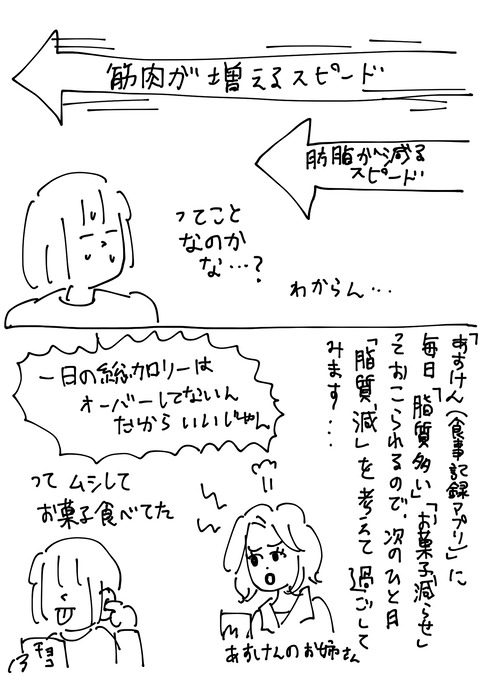 筋肉が増えるスピード
脂肪が減る
スピード
ってこと
なのか
な…?
わからん…
「あすけん(食事記録アプリ)」に
毎日「脂質多い」「お菓子減らせ」
っておこられるので、次のひと月
「脂質減」を考えて過ごして
みます…
一日の総カロリーは
オーバーしてないん
だからいいじゃん
って ムシして
お菓子食べてた
チョコ
あすけんのお姉さん